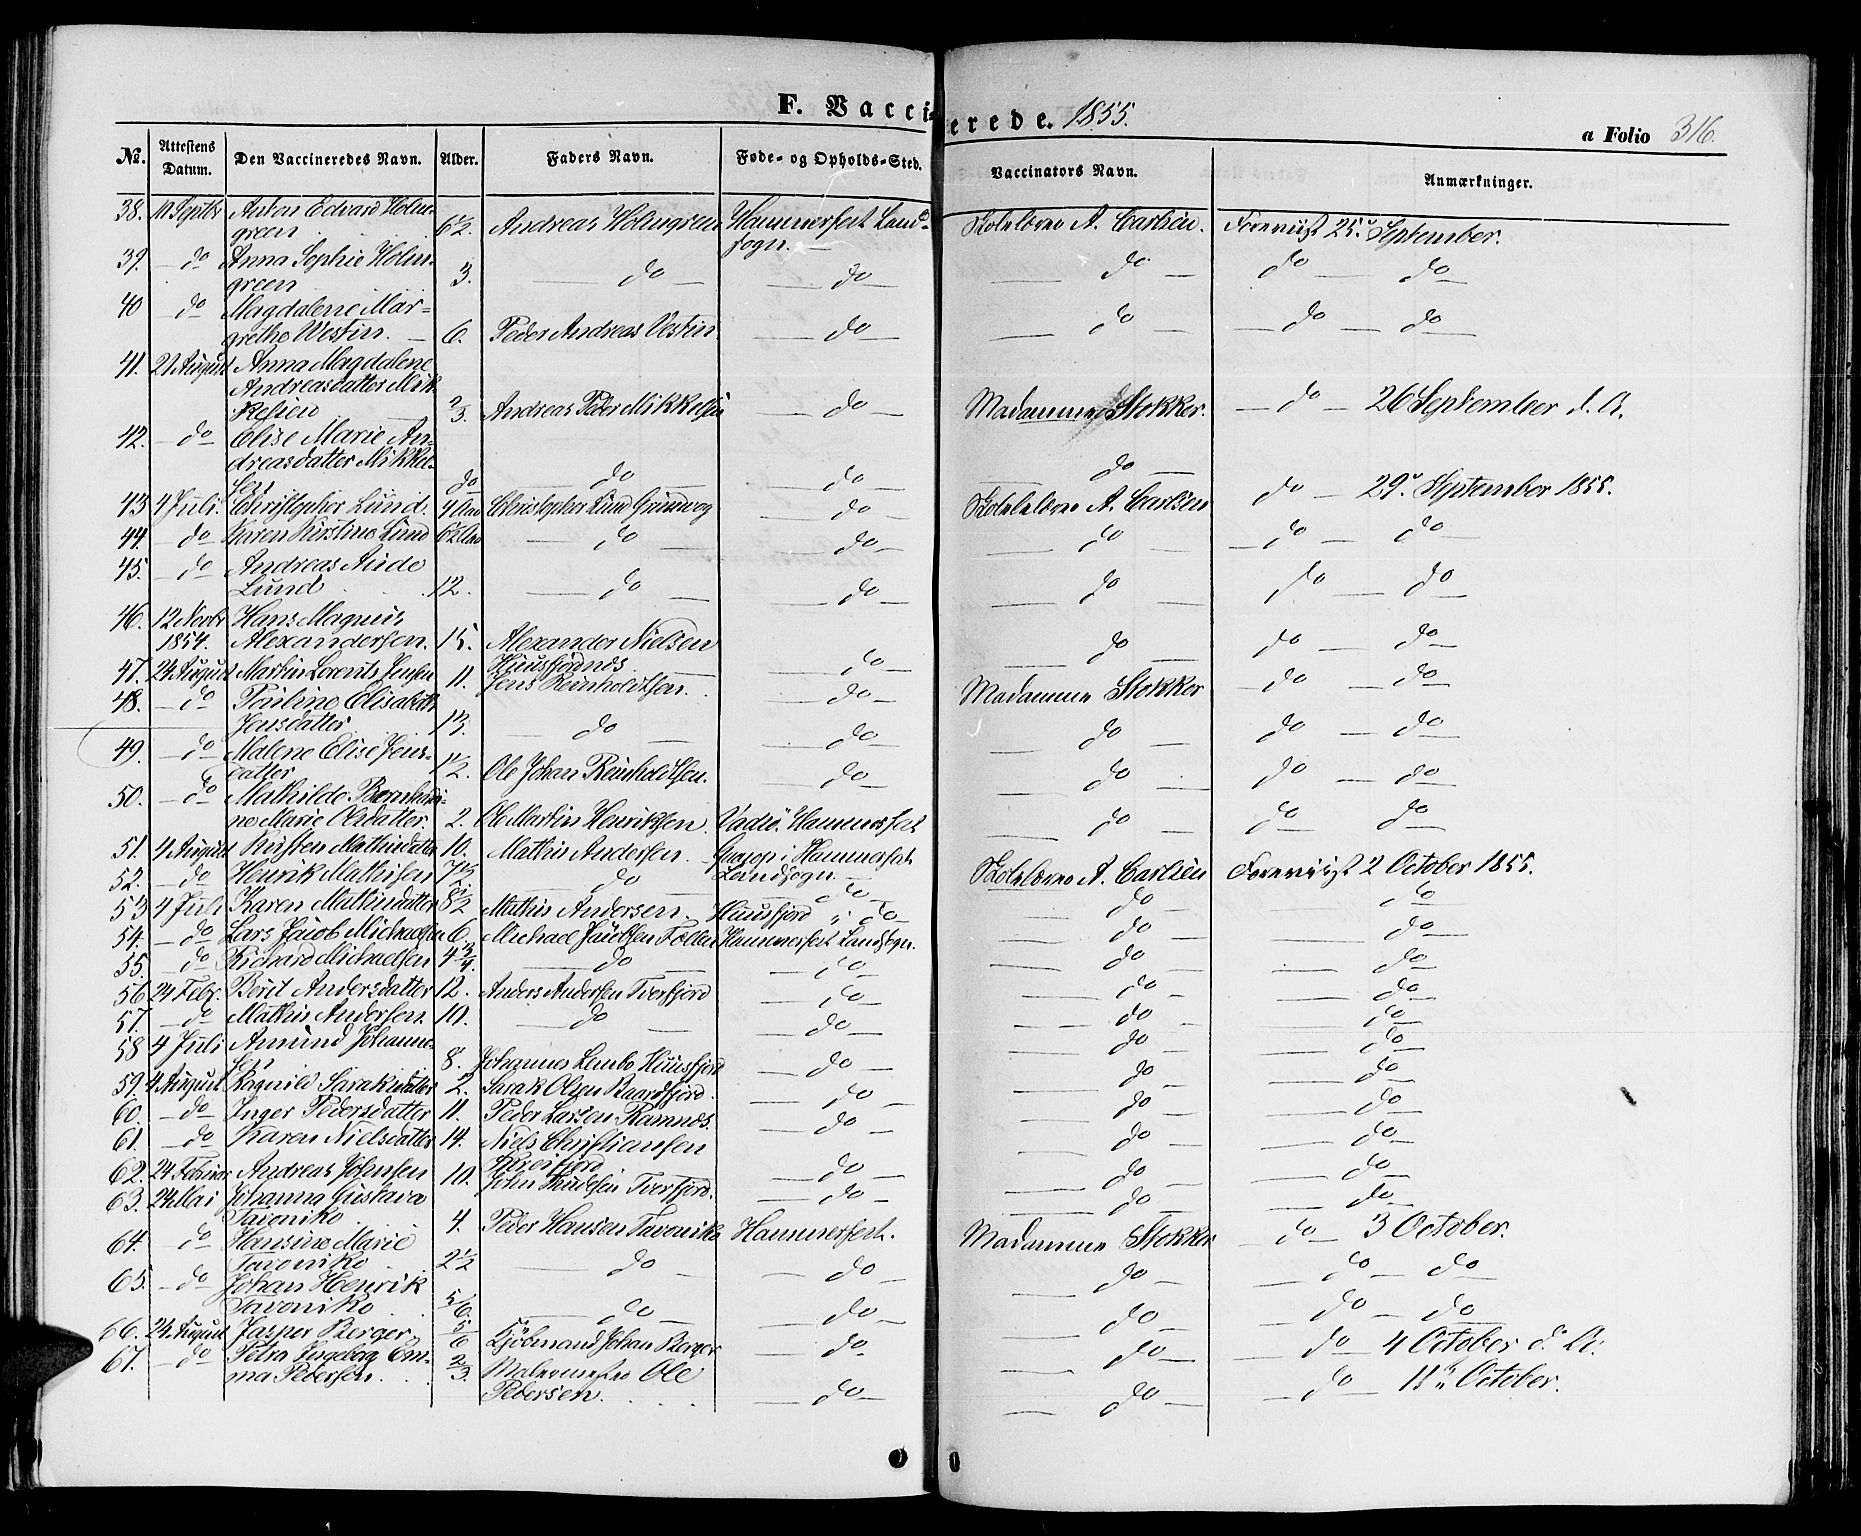 F. Vaccinerede. 1855.
a Folio 316.
No. Attestens Datum. Den Vaccineredes Navn. Alder. Faders Navn. Føde- og Opholds-Sted. Vaccinators Navn. Anmærkninger.
38. 11 Septbr Anton Edvard Holm- Hammerfest Land-
green 6½. Andreas Holmgreen sogn. Skolelærer A. Carlsen. Foreviist 25. September.
39. do Anna Sophie Holm-
green 3. do do do do do
40 do Magdalene Mar-
grethe Westin. 6. Peder Andreas Vestin. do do do do
41. 21 August Anna Magdalene
Andreasdatter Mik
kelsen 2/3. Andreas Peder Mikkelsen do Madamme Stokker. do 26 September d. A.
42. do Elise Marie An-
dreasdatter Mikkel-
sen do do do do
43 4 Juli. Christopher Lund. 4 Aar Christopher Lund do Skolelærer A. Carlsen do 29. September 1855.
44. do Karen Kirstine Lund 6½ Aar do do do do do
45. do Andreas
Lund 12. do do do do do
46. 12 Novbr Hans Magnus
1854. Alexandersen. 15. Alexander Nielsen do do do do
47. 24 August Martin Lorents Jensen 11. Jens Reinholdtsen. do Madamme Stokker do do
48. do Pauline Elisabeth
Jensdatter do do do do do
49. do Malene Elise Jens-
datter 1½. Ole Johan Reinholdtsen. do do do do
50. do Mathilde Bernhardi-
ne Marie Olsdatter. 2. Ole Martin Henriksen. Vadsø. Hammerfest do do do
51. 4 August Kirsten Mathisdatter 10. Mathis Andersen. i Hammerfest
52. do Henrik Mathisen do Landsogn. Skolelærer A. Carlsen Foreviist 2 October 1855.
53 4 Juli Karen Mathisdatter 8½ Mathis Andersen. Huusfjord i do do do
54. do Lars Jacob Michaelsen 6. Michael Jacobsen Hammerfest Landsogn. do do
55. do Richard Michaelsen do do do do
56 24 Febr. Berit Andersdatter 12. Anders Andersen Tverfjord do do do
57. do Mathis Andersen. 10. do do do do
58 4 Juli Amund Johanne-
sen 8. Johannes Huusfjord do do do
59. 4 August Ragnild Saraksdatter 2. Sarak Olsen Baardfjord. do do do
60. do Inger Pedersdatter 11. Peder Larsen Ramnes. do do do
61. do Karen Nielsdatter 14. Niels Christiansen do do do
62. 24 Februar Andreas Johnsen 10. John Tverfjord. do do do
63. 24 Mai Johanna Gustava
Tavoniko 4. Peder Hansen Tavoniko Hammerfest. Madamme Stokker do 3 October.
64. do Hansine Marie
Tavoniko 2½ do do do do do
65. do Johan Henrik
Tavoniko 5/6. do do do do do
66. 24 August Jasper Berger 5/6 Kjøbmand Johan Berger do do do 4 October d. A.
67. do Petra Ingeborg Em-
ma Pedersen. 2/3. Malermester Ole
Pedersen. do do do 11 October.